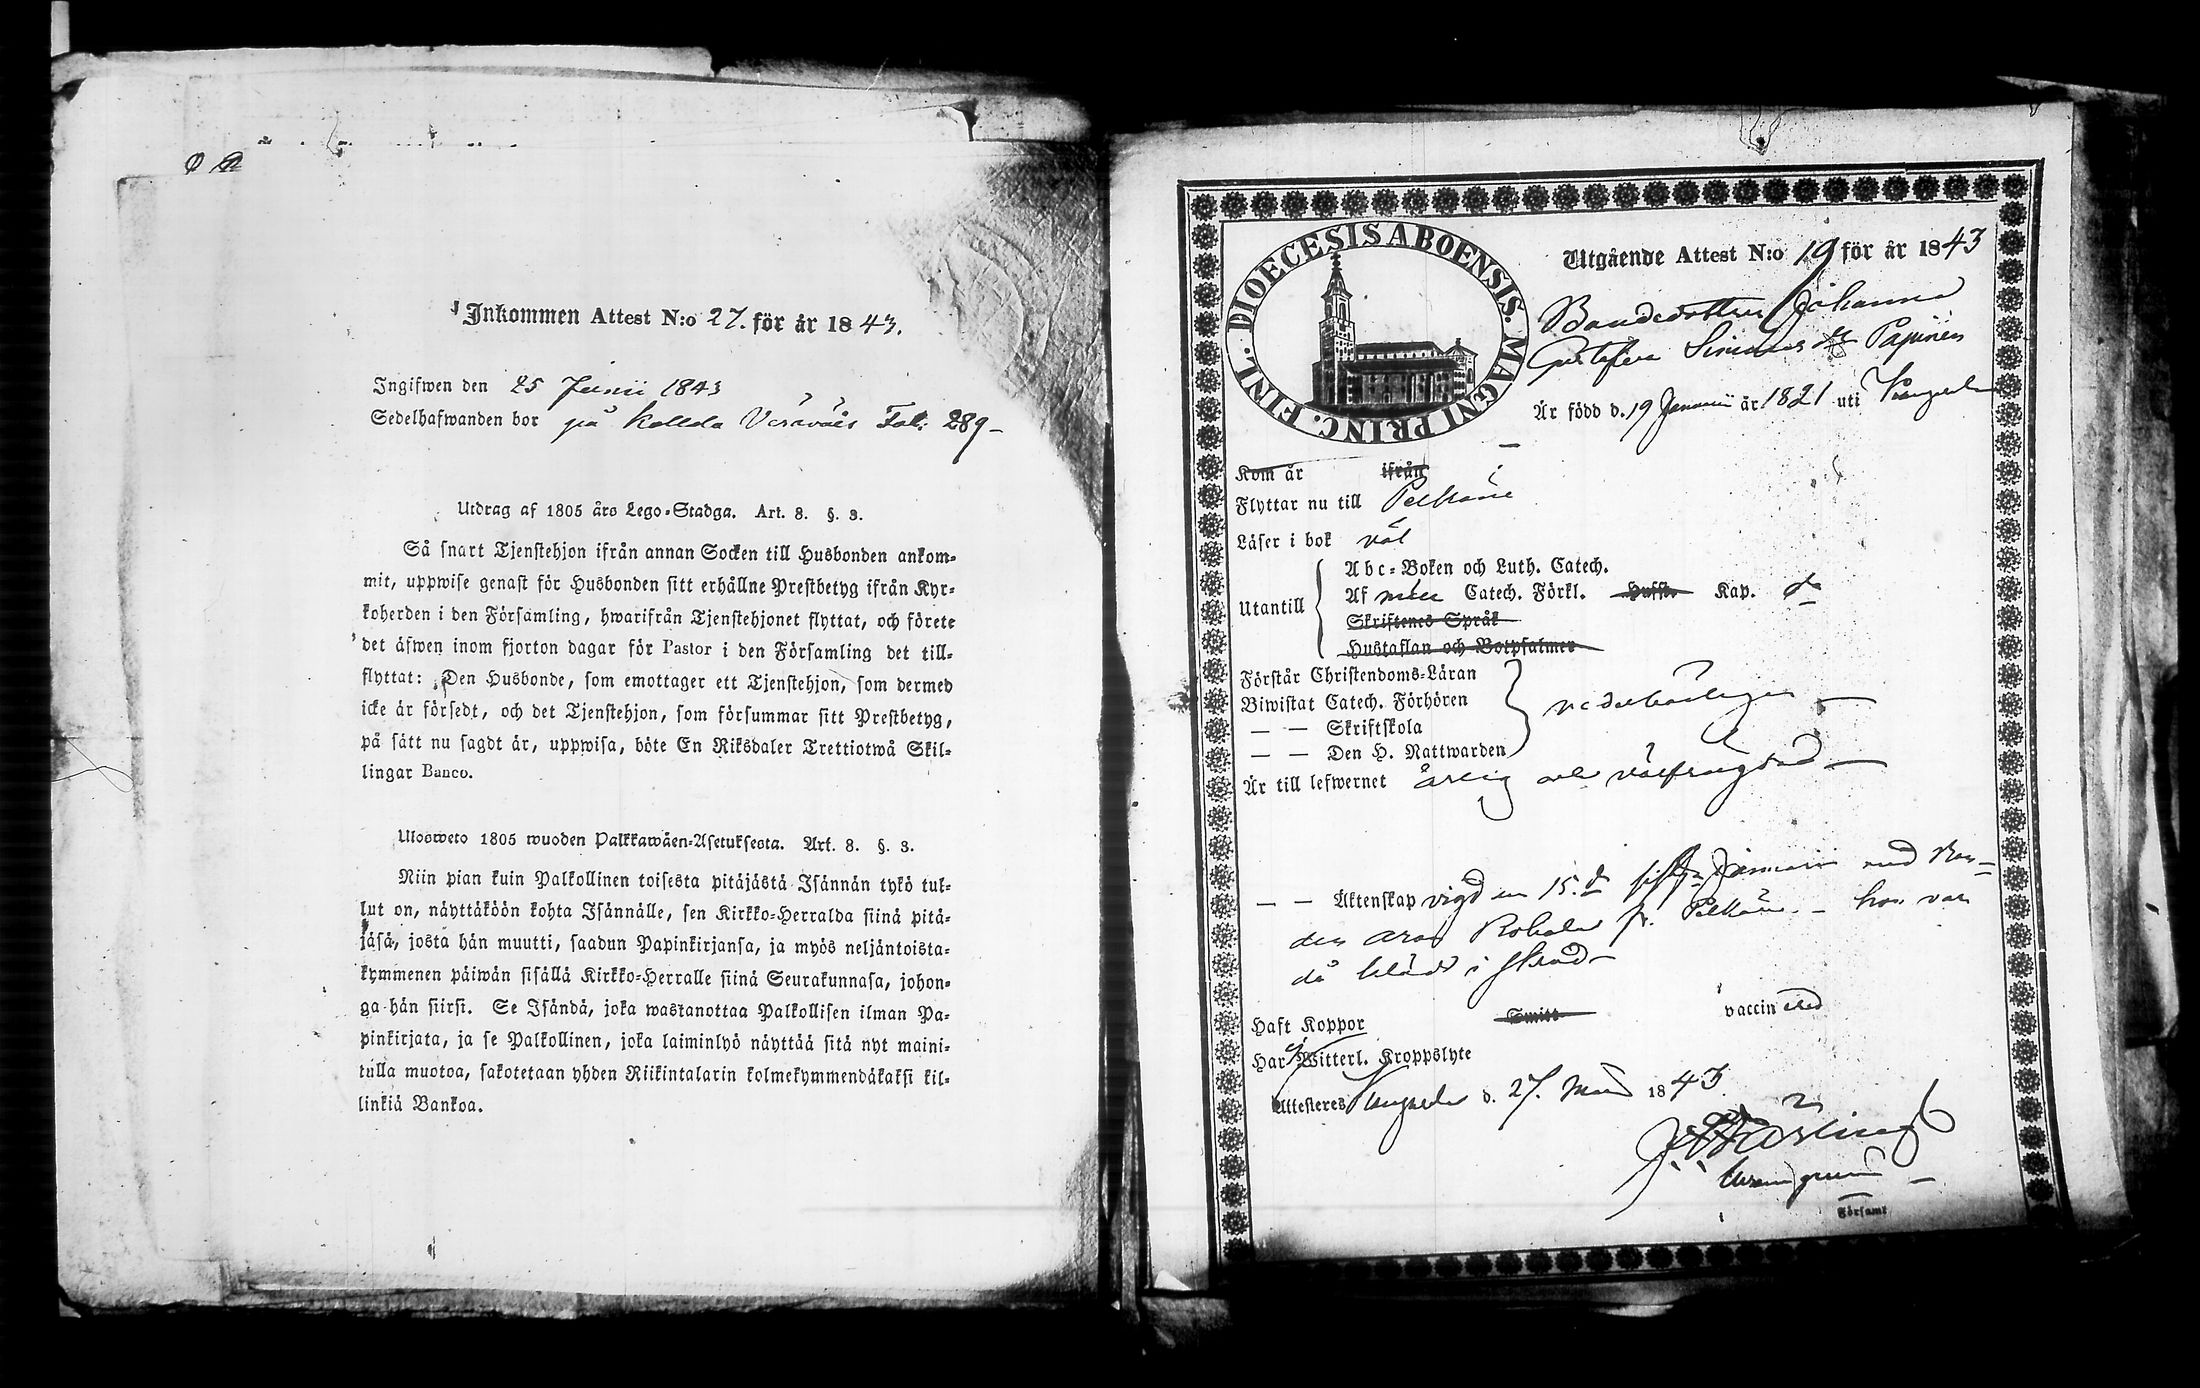 Inkommen Attest N:o 27. för år 1843.
Ingifwen den 25 Junii 1843
Sedelhafwanden bor på Fol. 289
Utdrag af 1805 års Lego-Stadga. Art. 8. §. 3.
Så snart Tjenstehjon ifrån annan Socken till Husbonden ankom-
mit, uppwise genast för Husbonden sitt erhållne Prestbetyg ifrån Kyr-
koherden i den Församling, hwarifrån Tjenstehjonet flyttat, och förete
det äfwen inom fjorton dagar för Pastor i den Församling det till-
flyttat: Den Husbonde, som emottager ett Tjenstehjon, som dermed
icke är försedt, och det Tjenstehjon, som försummar sitt Prestbetyg,
på sätt nu sagdt är, uppwisa, böte En Riksdaler Trettiotwå Skil-
lingar Banco.
Ulosweto 1805 wuoden Palkkawäen-Asetuksesta. Art. 8. §. 3.
Niin pian kuin Palkollinen toisesta pitäjästä Isännän tykö tul-
lut on, näyttäköön kohta Isännälle, sen Kirkko-Herralda siinä pitä-
jäsä, josta hän muutti, saadun Papinkirjansa, ja myös neljäntoista-
kymmenen päiwän sisällä Kirkko-Herralle siinä Seurakunnasa, johon-
ga hän siirsi. Se Isändä, joka wastanottaa Palkollisen ilman Pa-
pinkirjata, ja se Palkollinen, joka laiminlyö näyttää sitä nyt maini-
tulla muotoa, sakotetaan yhden Riikintalarin kolmekymmendäkaksi kil-
linkiä Bankoa.
DIOECESIS ABOENSIS. MAGNI PRINC. FINL.
Utgående Attest N:o 19 för år 1843
Bondedottren Johanna
Papinen
Är född d. 19 Januarii år 1821 uti
Kom år ifrån
Flyttar nu till Pelkäne
Läser i bok väl
Utantill
Abc-Boken och Luth. Catech.
Af Catech. Förkl. Hufst. Kap.
Skriftenes Språk
Hustaflan och Botpsalmer
Förstår Christendoms-Läran
Biwistat Catech. Förhören
— — Skriftskola
— — Den H. Nattwarden
Är till lefwernet ärlig och välfrägdad
— — Äktenskap vigd den 15. Januarii med Bon-
den Aron fr. Pelkäne – hon var
då klädd i skrud
Haft Koppor Smitt vaccinerad
Har ej Witterl. Kroppslyte
Attesteres d. 27. 1843
Församl